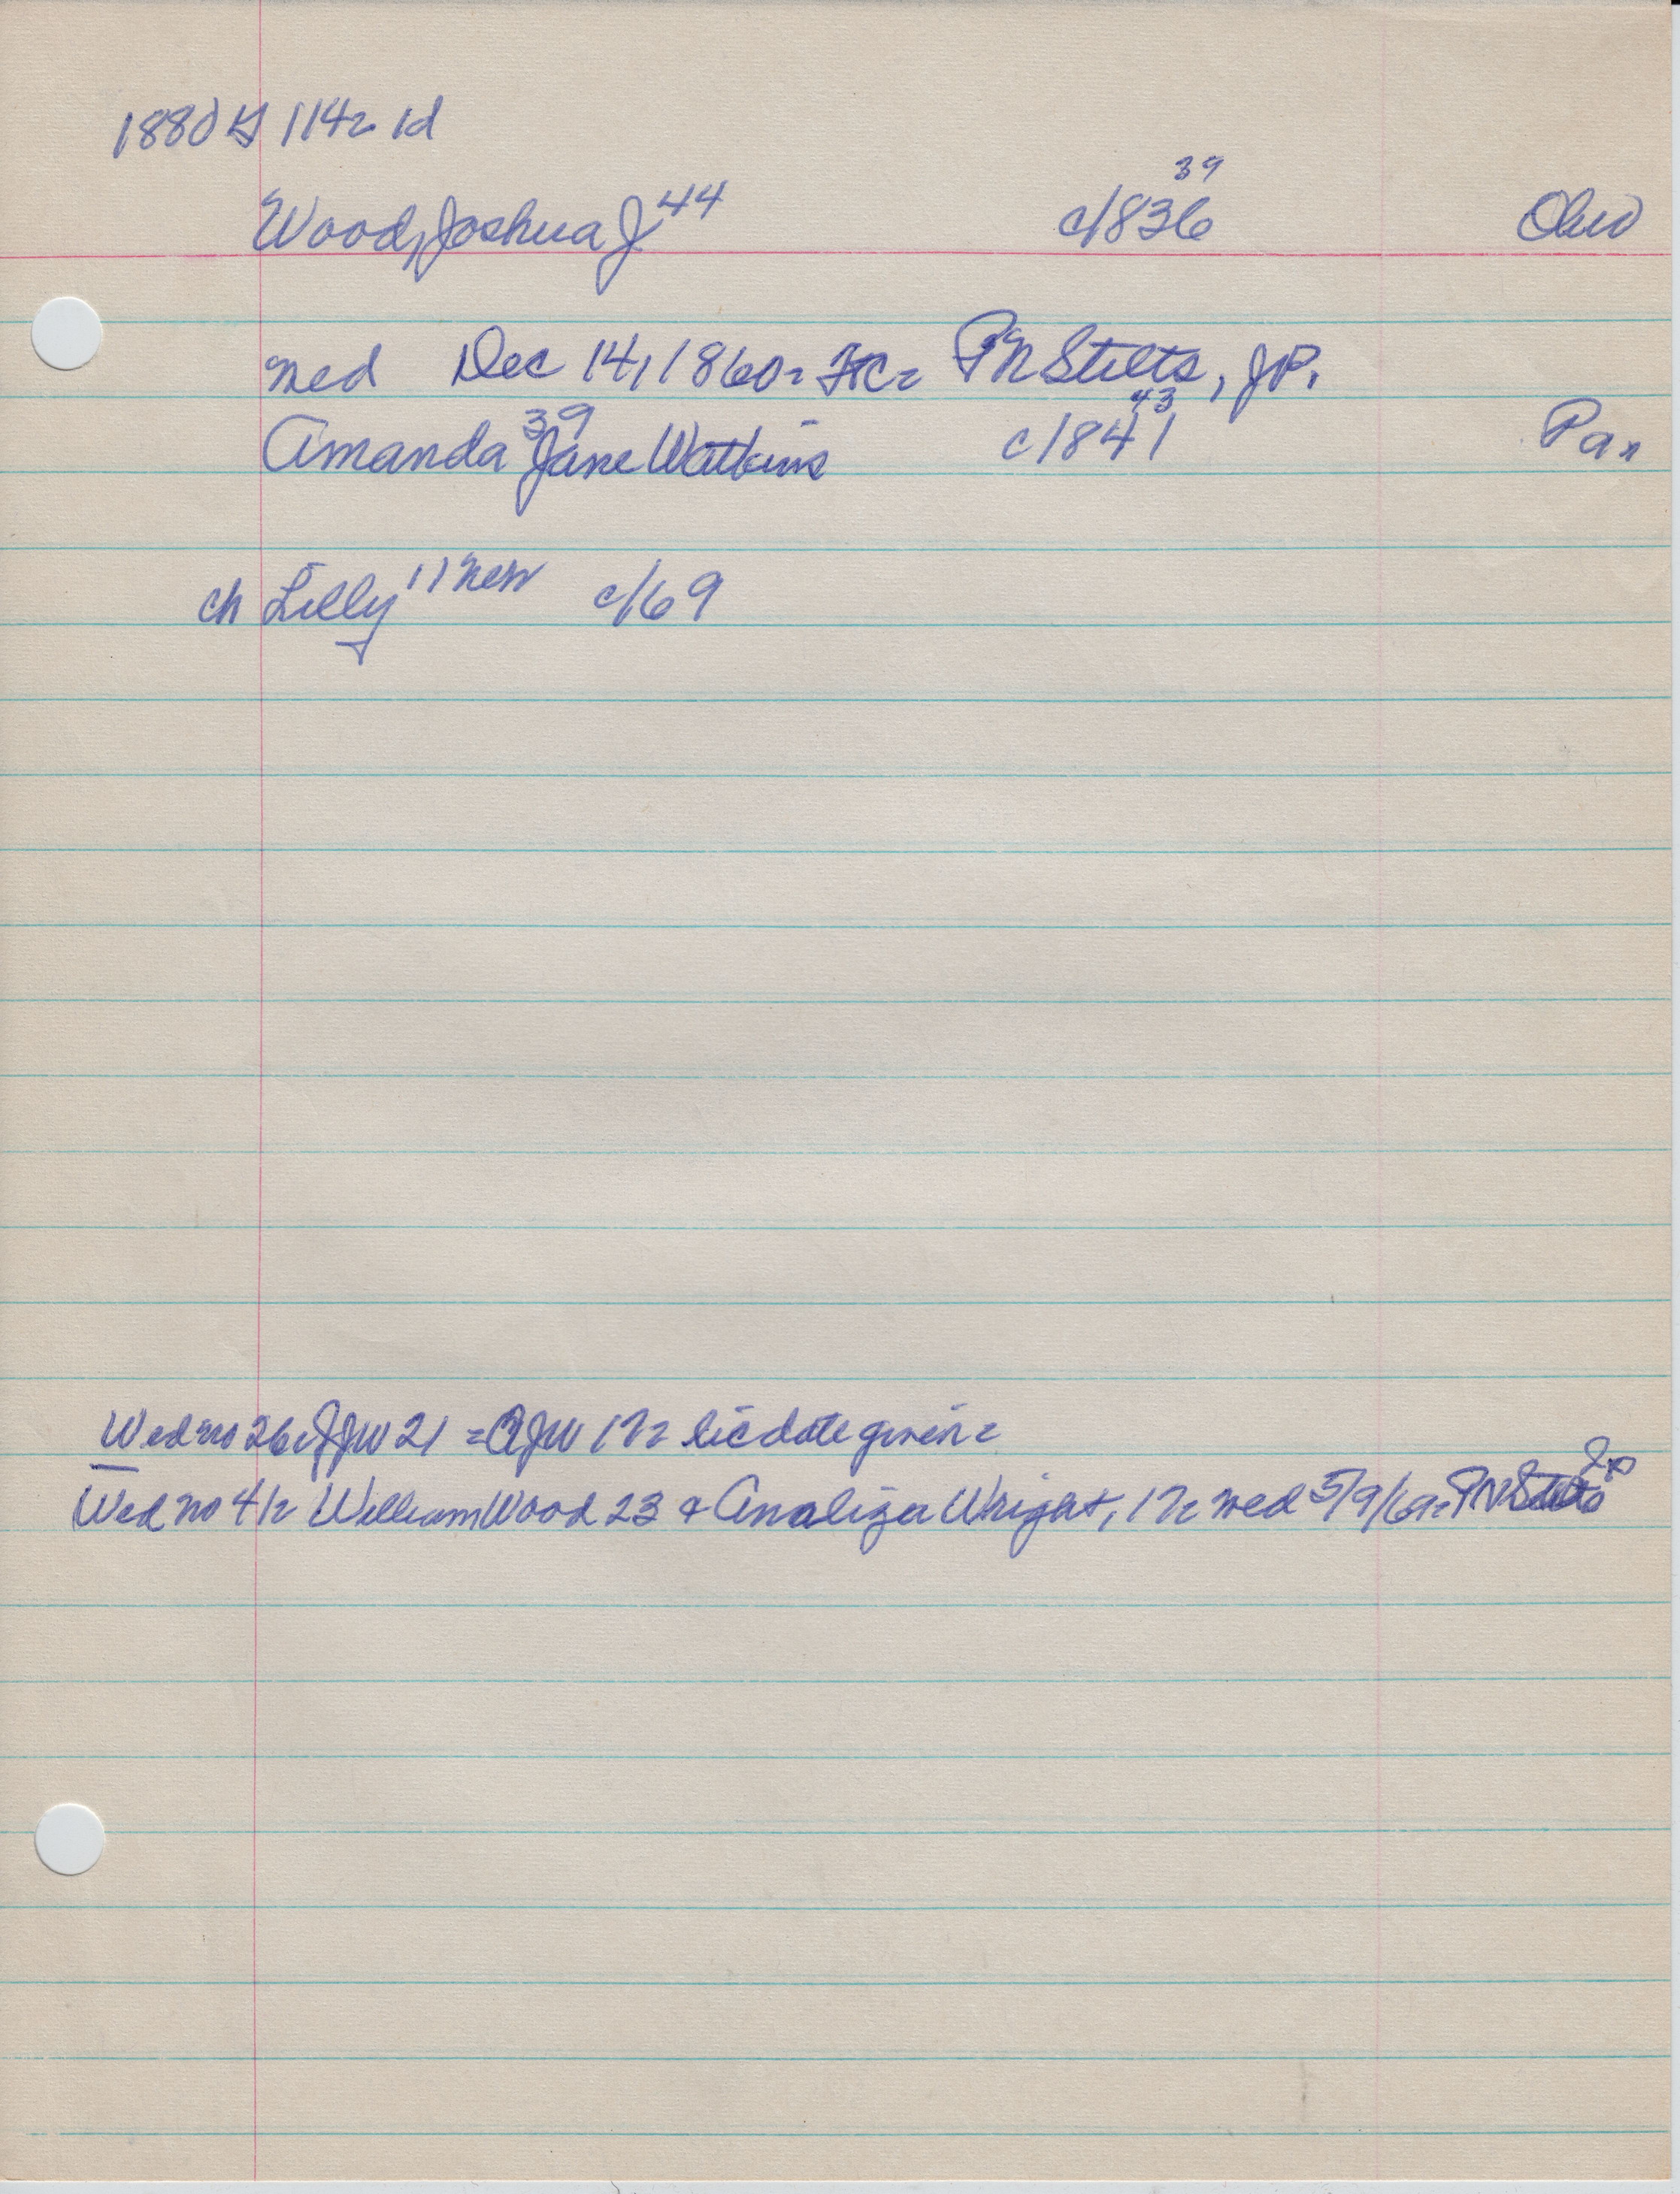 1880 114= 1d
39
Wood, Joshua J 44 c/836 Ohio
Wed Dec 14, 1860= FC= PN Stilts, JP.
39 43
Amanda Jane Watkins c/841 Pa=
ch Lilly 11 New c/69
Wed no 26 JJW 21 = AJW 17= lic date given=
JP
Wed no 41= William Wood 23 & Analiza Wright, 17= wed 5/9/61= PN Stilts